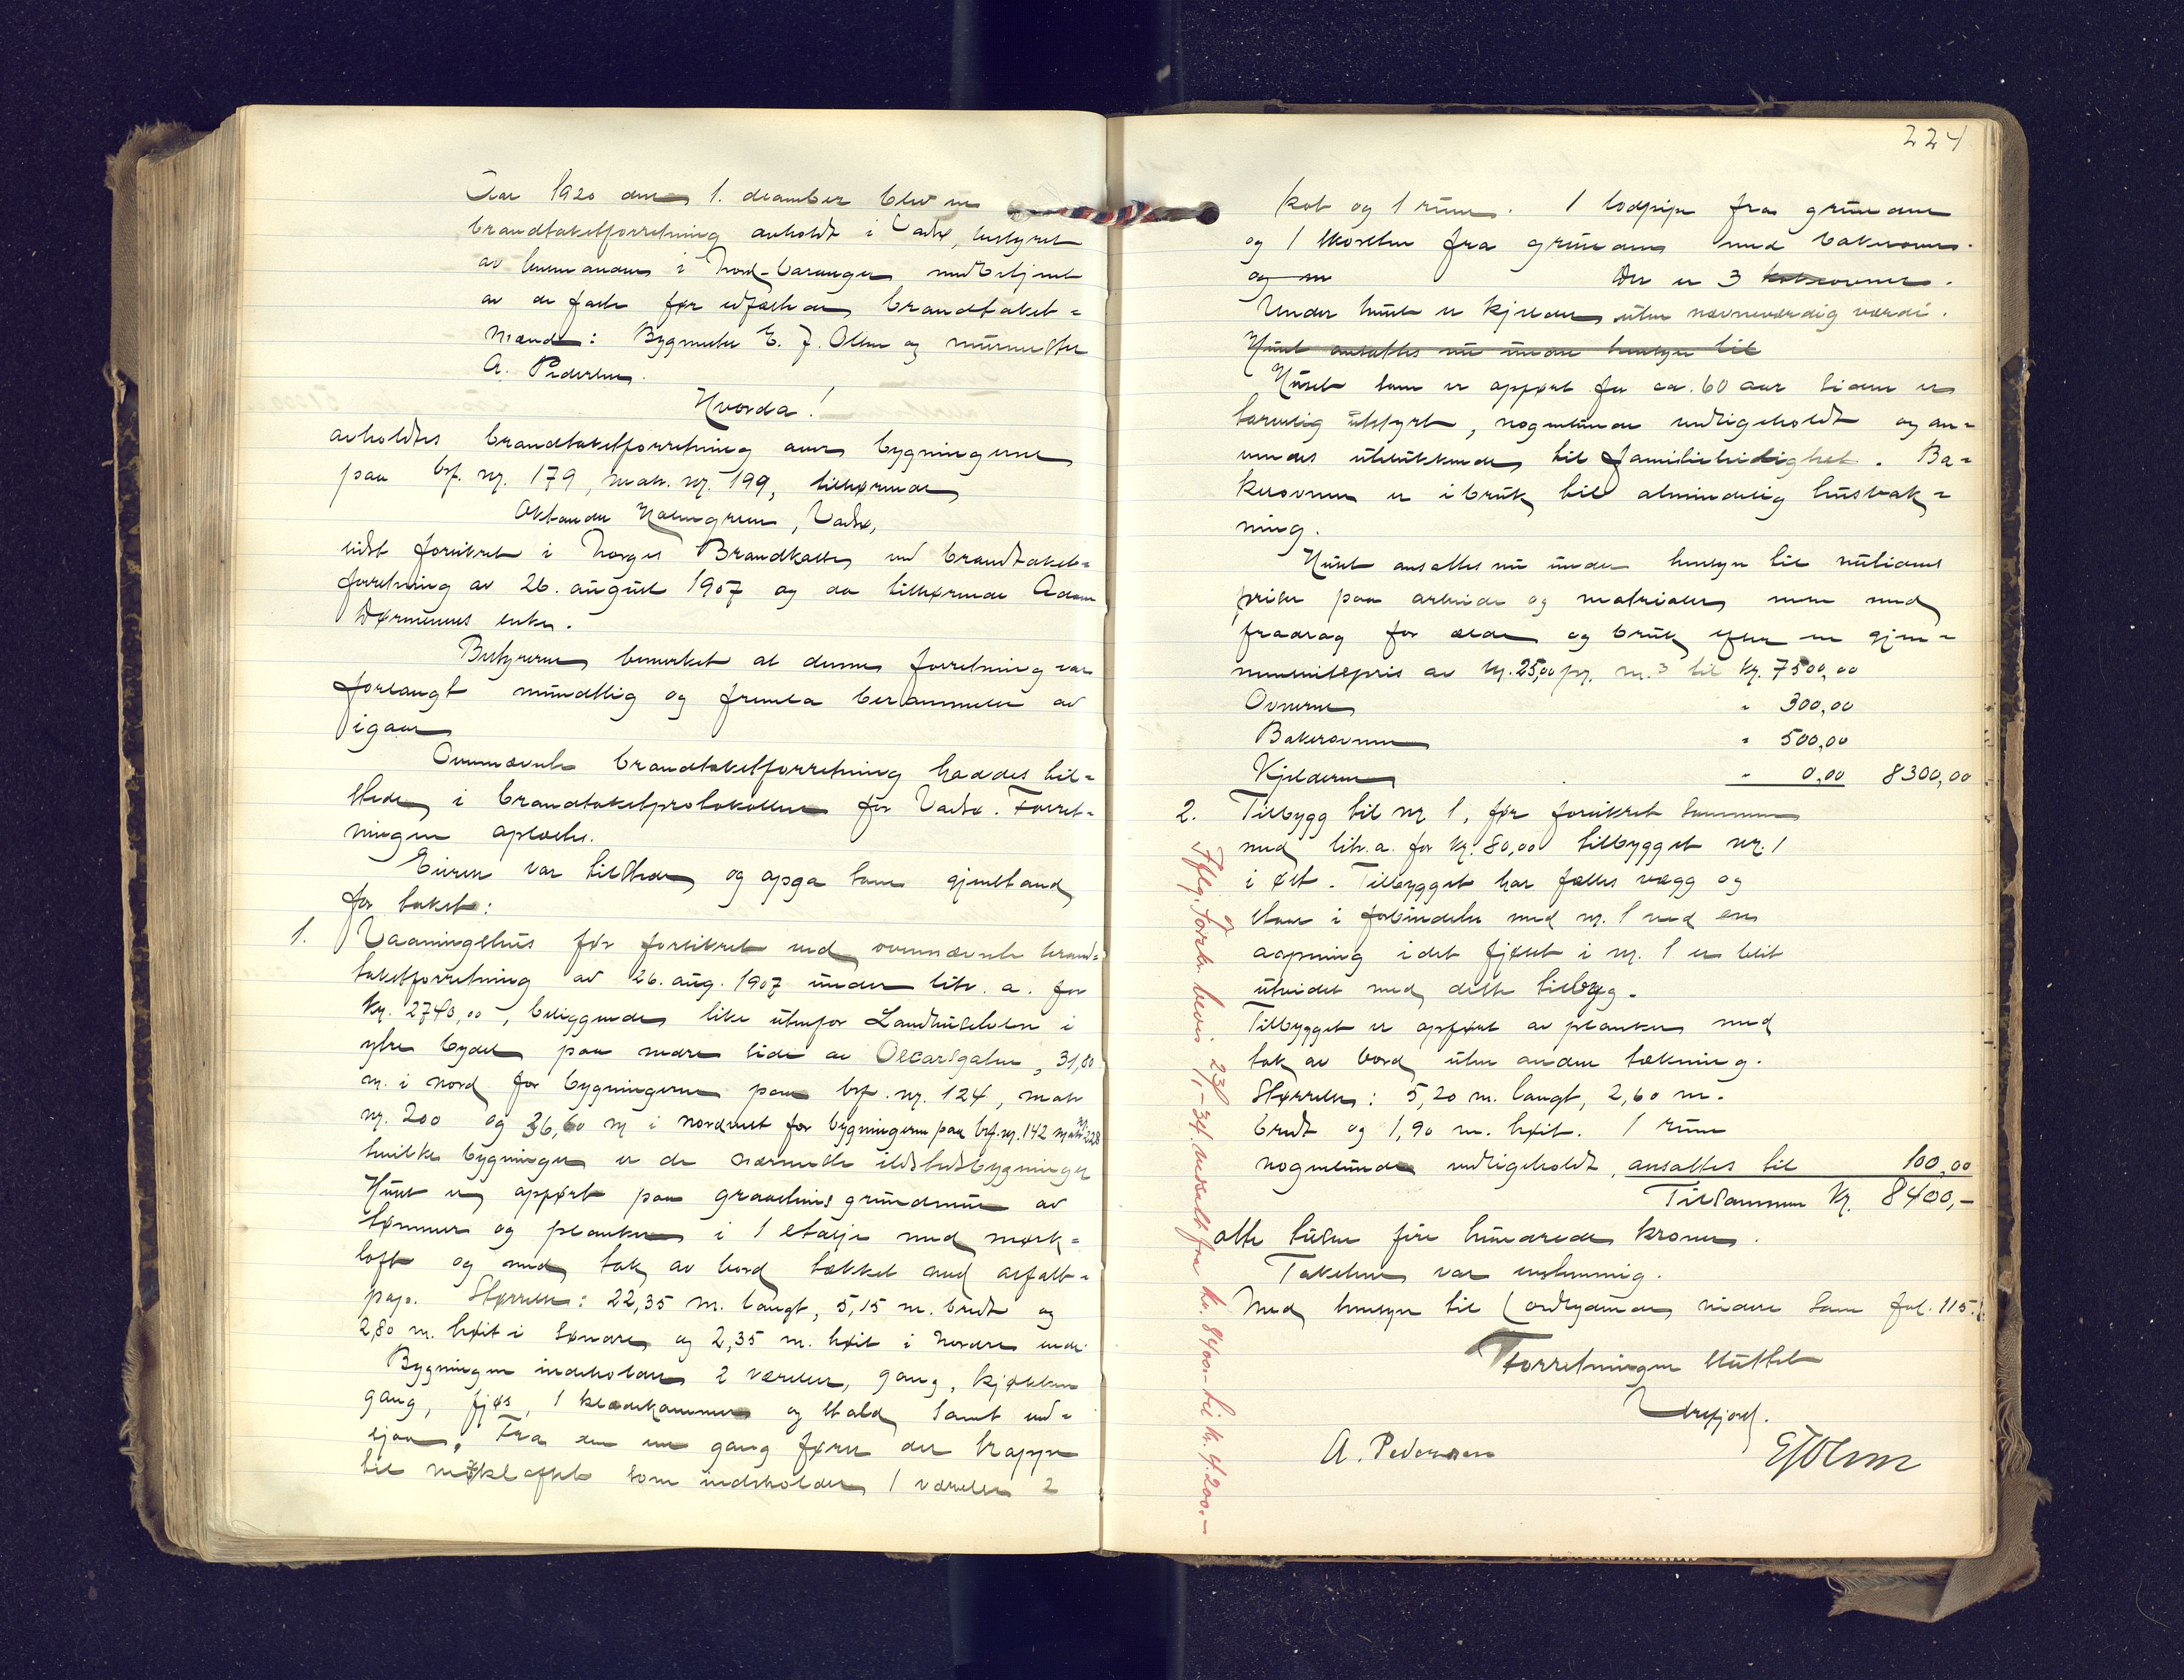 Aar 1920 den 1. december blev en
brandtakstforretning avholdt i Vadsø, bestyret
av lensmanden i Nord-Varanger med betjent
av de faste før edfæstede brandtakst-
mænd: Bygmester E. J. Olsen og murmester
A. Pedersen.
Hvorda!
avholdtes brandtakstforretning over bygningerne
paa brf. nr. 179, matr. nr. 199, tilhørende
Oktander Holmgren, Vadsø,
sidst forsikret i Norges Brandkasse ved brandtakst-
forretning av 26. august 1907 og da tilhørende Adam
enke.
Bestyreren bemerket at denne forretning var
forlangt mundtlig og fremla berammelse av
igaar
Ovennævnte brandtakstforretning haddes til-
stede i brandtakstprotokollen for Vadsø. Forret-
ningen oplæstes.
Eieren var tilstede og opga som gjenstand
for takst:
1. Vaaningshus før forsikret ved ovennævnte brand-
takstforretning av 26. aug. 1907 under litr. a. for
kr. 2740,00, beliggende like utenfor Landhuselven i
ytre bydel paa nedre side av Oscarsgaten, 31,80
m. i nord for bygningerne paa brf. nr. 124, matr
nr. 200 og 36,60 m i nordvest for bygningerne paa brf. nr. 142 matr nr. 228
hvilke bygninger er de nærmeste ildstedsbygninger
Huset er opført paa graastens grundmur av
tømmer og planker i 1 etasje med mørk-
loft og med tak av bord tækket med asfalt-
pap. Størrelse: 22,35 m. langt, 5,15 m. bredt og
2,80 m. høit i søndre og 2,35 m. høit i nordre ende.
Bygningen indeholder 2 værelser, gang, kjøkken
gang, fjøs, 1 klædekammer og stald samt ved-
sjaa. Fra den ene gang fører der trappe
til mørkloftet som indeholder 1 værelse 2
224
kot og 1 rum. 1 lodpipe fra grunden
og 1 skorsten fra grunden med bakerovn.
og en Der er 3 kokeovner.
Under huset er kjelder uten nævneværdig værdi.
Huset ansattes nu under hensyn til
Huset som er opført for ca. 60 aar siden er
tarvelig utstyrt, nogenlunde vedligeholdt og an-
vendes utelukkende til familieleilighet. Ba-
kerovnen er i bruk til almindelig husbak-
ning.
Huset ansattes nu under hensyn til nutidens
priser paa arbeide og materialer men med
fradrag for ælde og bruk efter en gjen-
nemsnitspris av kr. 25,00 pr. m.3 til kr. 7500,00
Ovnerne " 300,00
Bakerovnen " 500,00
Kjelderen " 0,00 8300,00
2. Tilbygg til nr 1, før forsikret sammen
med litr. a. for kr. 80,00 tilbygget nr. 1
i øst. Tilbygget har fælles vægg og
staar i forbindelse med nr. 1 ved en
aapning idet fjøset i nr. 1 er blit
utvidet med dette tilbyg.
Tilbygget er opført av planker med
tak av bord uten anden tækning.
Størrelse: 5,20 m. langt, 2,60 m.
bredt og 1,90 m. høit. 1 rum
nogenlunde vedligeholdt, ansattes til 100,00
Tilsammen kr. 8400,-
otte tusen fire hundrede kroner.
Taksten var enstemmig.
Med hensyn til (ordlydende videre som fol. 115.)
Forretningen sluttet
A. Pedersen
EJOlsen
Iflg. forsk. bevis 23/1-34 nedsatt fra kr. 8400.- til kr. 4.200.-